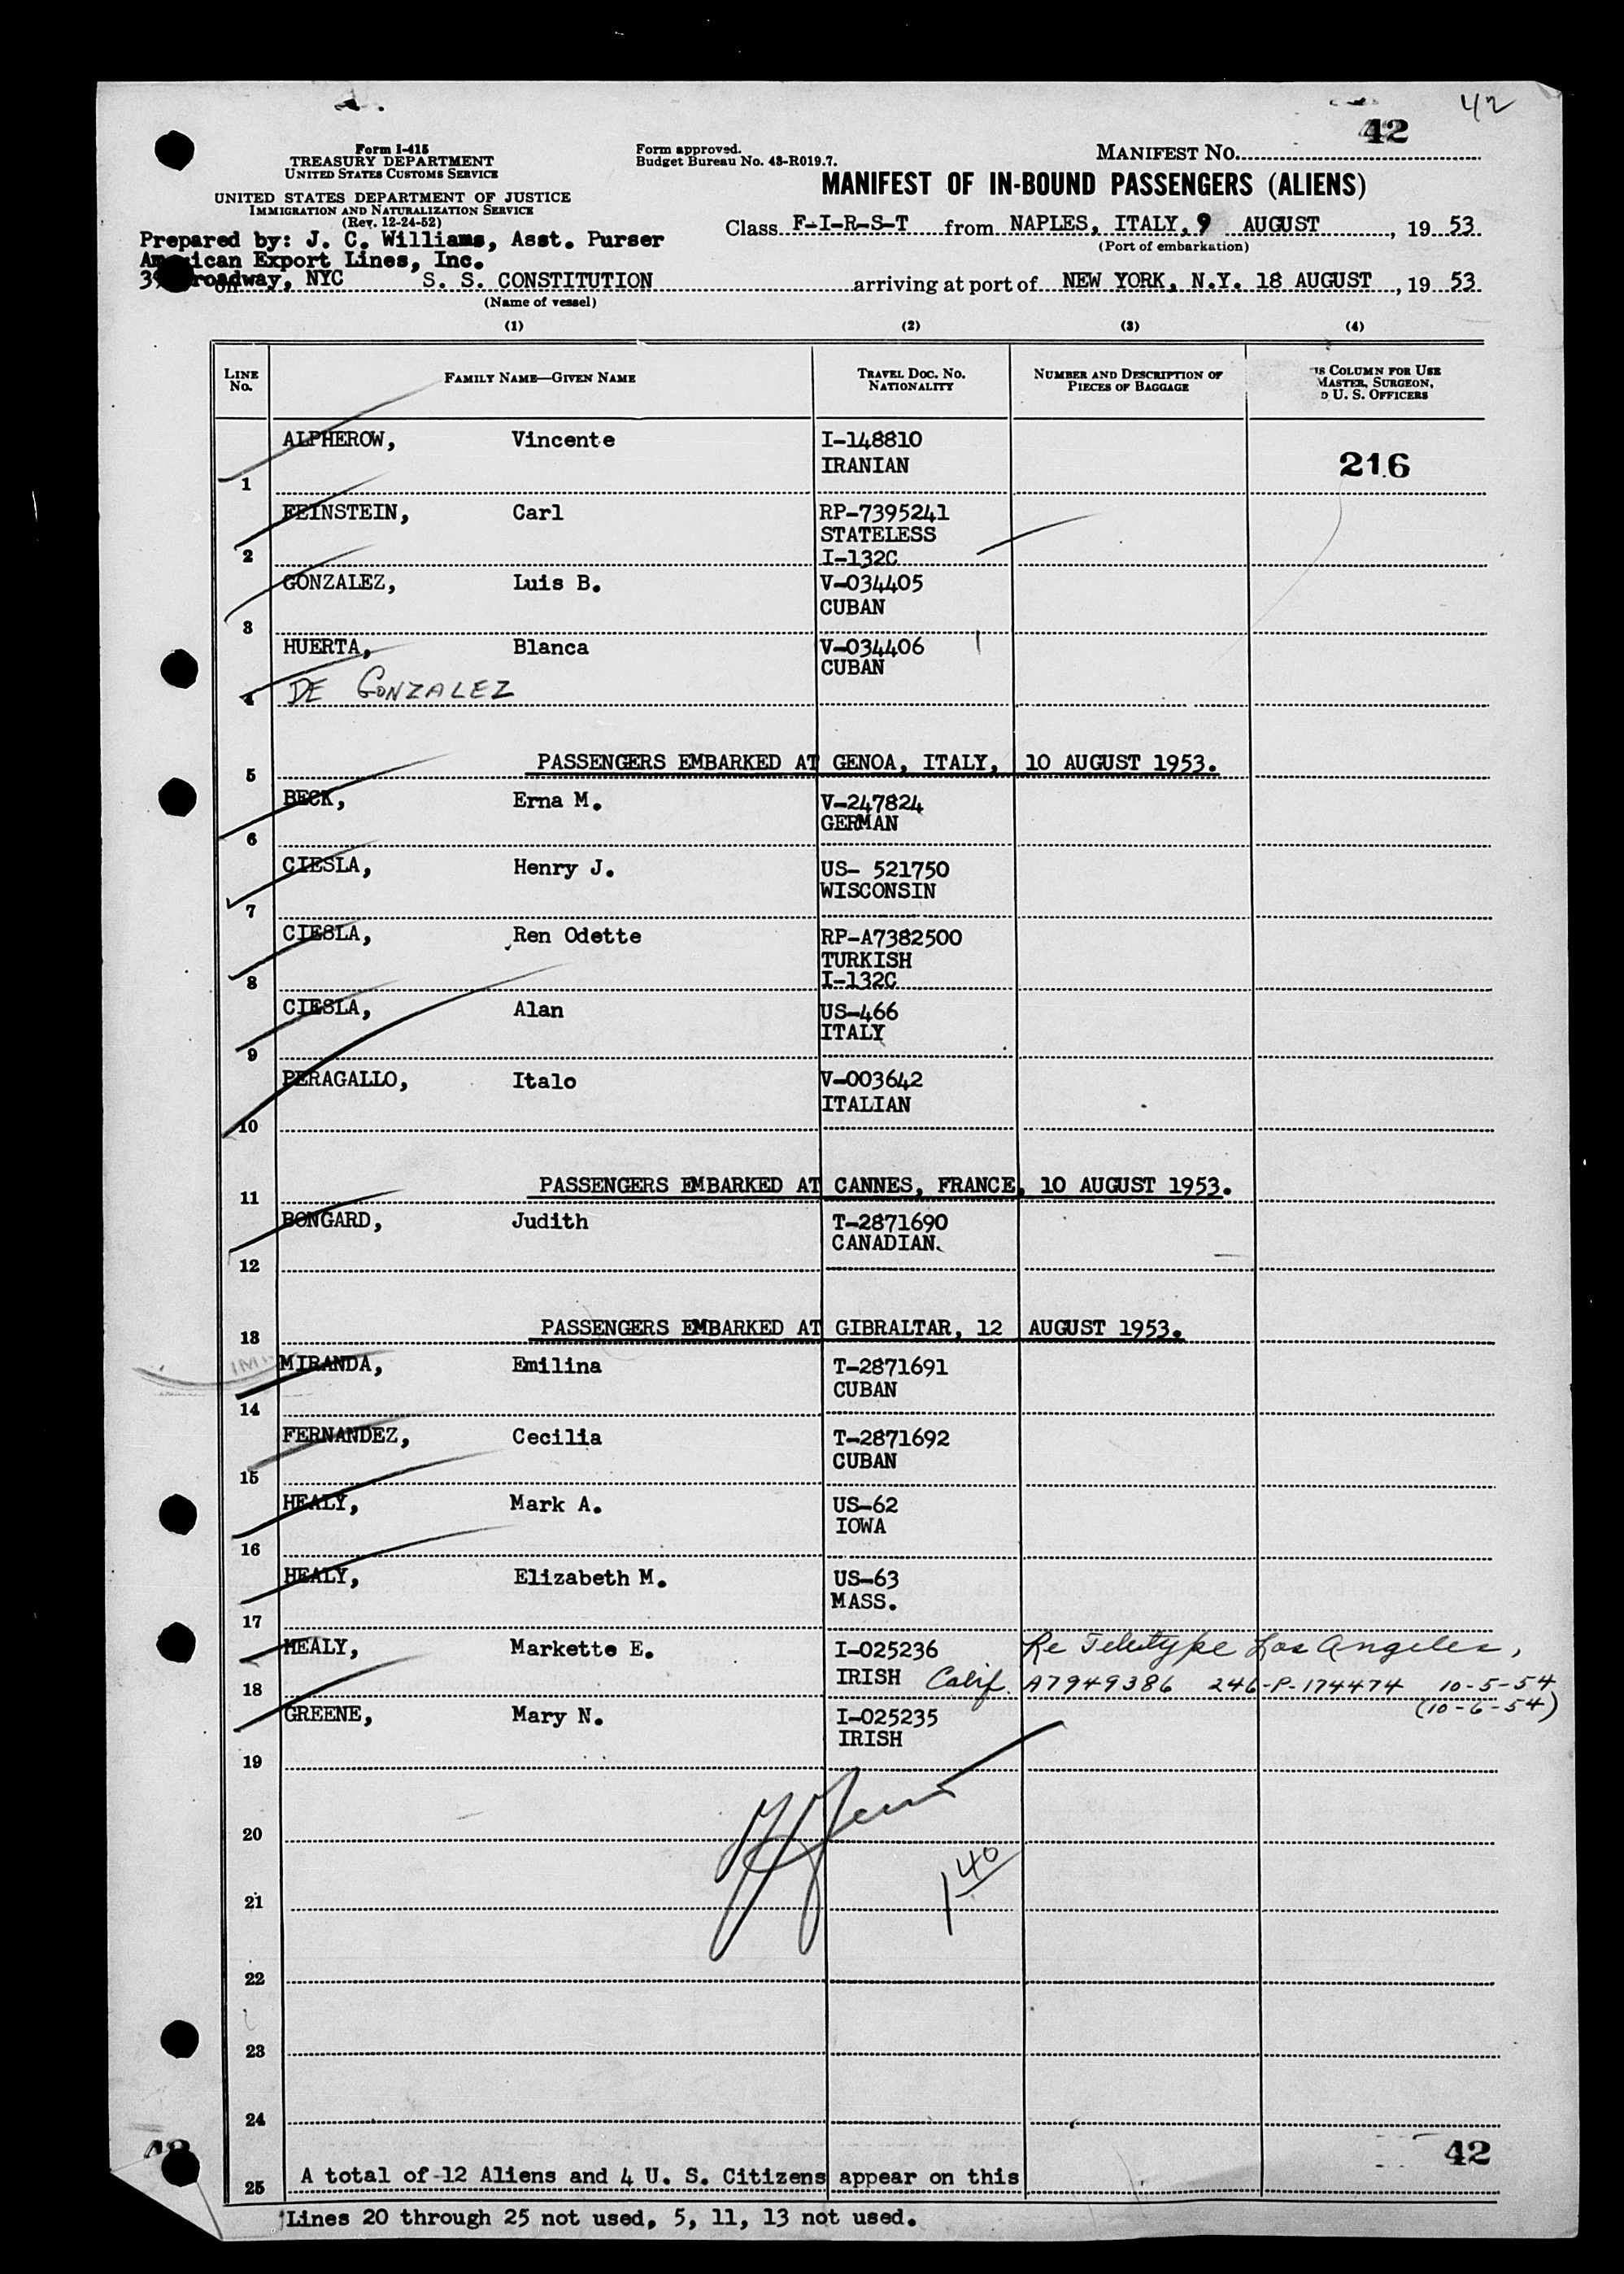 42
42
Form I-415
TREASURY DEPARTMENT
UNITED STATES CUSTOMS SERVICE
UNITED STATES DEPARTMENT OF JUSTICE
IMMIGRATION AND NATURALIZATION SERVICE
(Rev. 12-24-52)
Form approved.
Budget Bureau No. 43-R019.7.
MANIFEST NO.
MANIFEST OF IN-BOUND PASSENGERS (ALIENS)
Class F-I-R-S-T from NAPLES, ITALY, 9 AUGUST, 19 53
(Port of embarkation)
Prepared by: J. C. Williams, Asst. Purser
American Export Lines, Inc.
39 Broadway, NYC
on S. S. CONSTITUTION arriving at port of NEW YORK, N.Y. 18 AUGUST, 19 53
(Name of vessel)
(1) (2) (3) (4)
LINE NO. FAMILY NAME—GIVEN NAME TRAVEL DOC. NO. NATIONALITY NUMBER AND DESCRIPTION OF PIECES OF BAGGAGE IS COLUMN FOR USE MASTER, SURGEON, D U. S. OFFICERS
1 ALPHEROW, Vincente I-148810 216
IRANIAN
2 FEINSTEIN, Carl RP-7395241
STATELESS
I-132C
3 GONZALEZ, Luis B. V-034405
CUBAN
4 HUERTA, Blanca V-034406
CUBAN
DE GONZALEZ
5 PASSENGERS EMBARKED AT GENOA, ITALY, 10 AUGUST 1953.
6 BECK, Erna M. V-247824
GERMAN
7 CIESLA, Henry J. US- 521750
WISCONSIN
8 CIESLA, Ren Odette RP-A7382500
TURKISH
I-132C
9 CIESLA, Alan US-466
ITALY
10 PERAGALLO, Italo V-003642
ITALIAN
11 PASSENGERS EMBARKED AT CANNES, FRANCE, 10 AUGUST 1953.
12 BONGARD, Judith T-2871690
CANADIAN.
13 PASSENGERS EMBARKED AT GIBRALTAR, 12 AUGUST 1953.
14 MIRANDA, Emilina T-2871691
CUBAN
15 FERNANDEZ, Cecilia T-2871692
CUBAN
16 HEALY, Mark A. US-62
IOWA
17 HEALY, Elizabeth M. US-63
MASS.
18 HEALY, Markette E. I-025236 Re Teletype Los Angeles,
IRISH Calif. A7949386 246-P-174474 10-5-54
(10-6-54)
19 GREENE, Mary N. I-025235
IRISH
20
21 1 40
22
23
24
42
25 A total of 12 Aliens and 4 U. S. Citizens appear on this
Lines 20 through 25 not used, 5, 11, 13 not used.